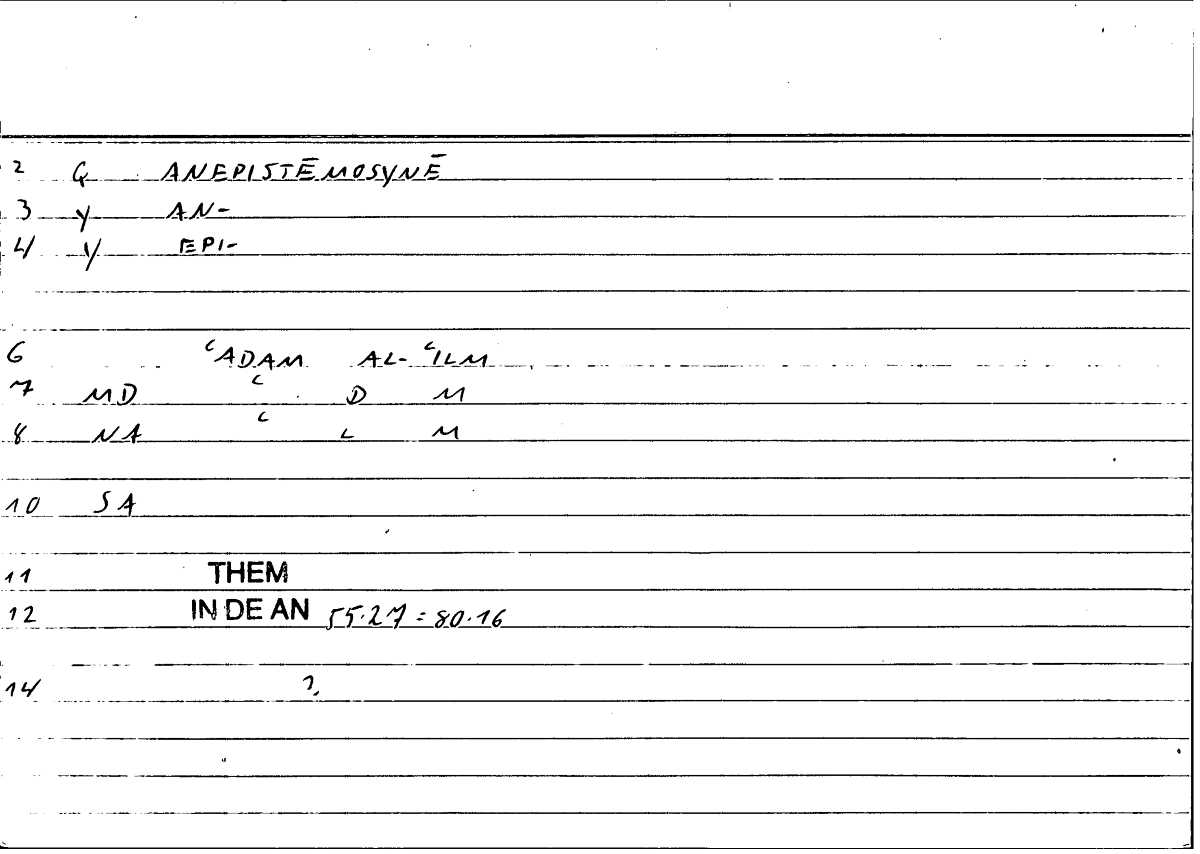 2 G ANEPISTĒMOSYNĒ
3 Y AN-
4 Y EPI-
6 ʿADAM AL-ʿILM
7 MD ʿ D M
8 NA ʿ L M
10 SA
11 THEM
12 IN DE AN 55.27 = 80.16
14 ?